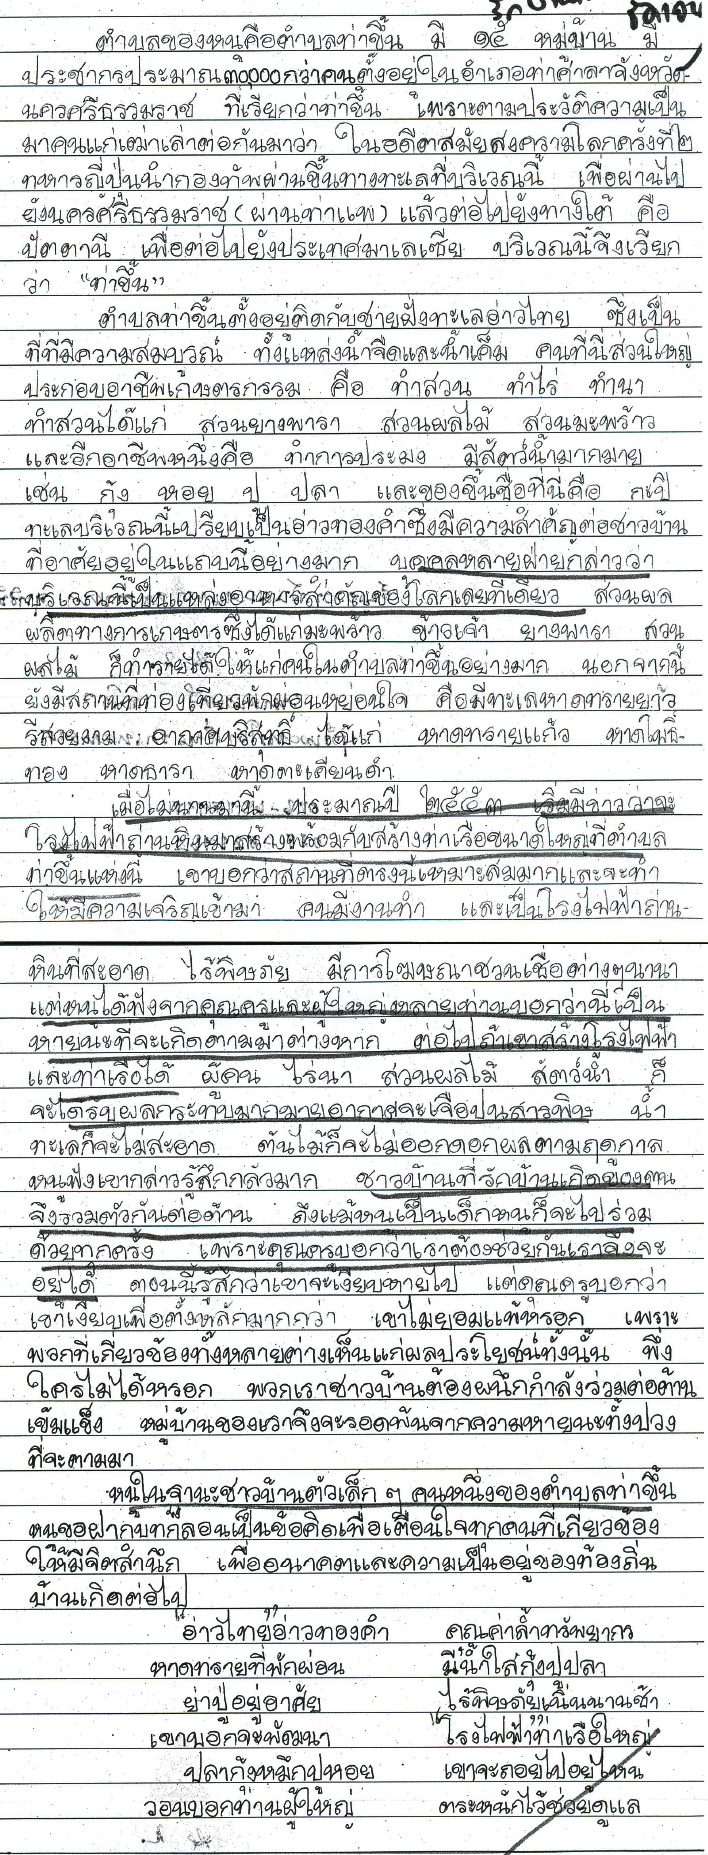 ตำบลของหนูคือตำบลท่าขึ้น มี ๑๕ หมู่บ้าน มี
ประชากรประมาณ๓๐,๐๐๐กว่าคนตั้งอยู่ในอำเภอท่าศาลาจังหวัด
นครศรีธรรมราช ที่เรียกว่าท่าขึ้น เพราะตามประวัติความเป็น
มาคนแก่เฒ่าเล่าต่อกันมาว่า ในอดีตสมัยสงครามโลกครั้งที่๒
ทหารญี่ปุ่นนำกองทัพผ่านขึ้นทางทะเลที่บริเวณนี้ เพื่อผ่านไป
ยังนครศรีธรรมราช (ผ่านท่าแพ) แล้วต่อไปยังทางใต้ คือ
ปัตตานี เพื่อต่อไปยังประเทศมาเลเซีย บริเวณนี้จึงเรียก
ว่า "ท่าขึ้น"
ตำบลท่าขึ้นตั้งอยู่ติดกับชายฝั่งทะเลอ่าวไทย ซึ่งเป็น
ที่ที่มีความสมบูรณ์ ทั้งแหล่งน้ำจืดและน้ำเค็ม คนที่นี่ส่วนใหญ่
ประกอบอาชีพเกษตรกรรม คือ ทำสวน ทำไร่ ทำนา
ทำสวนได้แก่ สวนยางพารา สวนผลไม้ สวนมะพร้าว
และอีกอาชีพหนึ่งคือ ทำการประมง มีสัตว์น้ำมากมาย
เช่น กุ้ง หอย ปู ปลา และของขึ้นชื่อที่นี่คือ กะปิ
ทะเลบริเวณนี้เปรียบเป็นอ่าวทองคำซึ่งมีความสำคัญต่อชาวบ้าน
ที่อาศัยอยู่ในแถบนี้อย่างมาก บุคคลหลายฝ่ายกล่าวว่า
บริเวณนี้เป็นแหล่งอาหารสำคัญของโลกเลยทีเดียว ส่วนผล
ผลิตทางการเกษตรซึ่งได้แก่มะพร้าว ข้าวเจ้า ยางพารา สวน
ผลไม้ ก็ทำรายได้ให้แก่คนในตำบลท่าขึ้นอย่างมาก นอกจากนี้
ยังมีสถานที่ท่องเที่ยวพักผ่อนหย่อนใจ คือมีทะเลหาดทรายยาว
รีสวยงาม อากาศบริสุทธิ์ ได้แก่ หาดทรายแก้ว หาดโพธิ์-
ทอง หาดธารา หาดตะเคียนดำ
เมื่อไม่นานมานี้ ประมาณปี ๒๕๕๓ เริ่มมีข่าวว่าจะ
โรงไฟฟ้าถ่านหินมาสร้างพร้อมกับสร้างท่าเรือขนาดใหญ่ที่ตำบล
ท่าขึ้นแห่งนี้ เขาบอกว่าสถานที่ตรงนี้เหมาะสมมากและจะทำ
ให้มีความเจริญเข้ามา คนมีงานทำ และเป็นโรงไฟฟ้าถ่าน-
หินที่สะอาด ไร้พิษภัย มีการโฆษณาชวนเชื่อต่างๆนานา
แต่หนูได้ฟังจากคุณครูและผู้ใหญ่หลายท่านบอกว่านี่เป็น
หายนะที่จะเกิดตามมาต่างหาก ต่อไปถ้าเขาสร้างโรงไฟฟ้า
และท่าเรือได้ ผู้คน ไร่นา สวนผลไม้ สัตว์น้ำ ก็
จะได้รับผลกระทบมากมายอากาศจะเจือปนสารพิษ น้ำ
ทะเลก็จะไม่สะอาด ต้นไม้ก็จะไม่ออกดอกผลตามฤดูกาล
หนูฟังเขากล่าวรู้สึกกลัวมาก ชาวบ้านที่รักบ้านเกิดของตน
จึงรวมตัวกันต่อต้าน ถึงแม้หนูเป็นเด็กหนูก็จะไปร่วม
ด้วยทุกครั้ง เพราะคุณครูบอกว่าเราต้องช่วยกันเราจึงจะ
อยู่ได้ ตอนนี้รู้สึกว่าเขาจะเงียบหายไป แต่คุณครูบอกว่า
เขาเงียบเพื่อตั้งหลักมากกว่า เขาไม่ยอมแพ้หรอก เพราะ
พวกที่เกี่ยวข้องทั้งหลายต่างเห็นแก่ผลประโยชน์ทั้งนั้น พึ่ง
ใครไม่ได้หรอก พวกเราชาวบ้านต้องผนึกกำลังร่วมต่อต้าน
เข้มแข็ง หมู่บ้านของเราจึงจะรอดพ้นจากความหายนะทั้งปวง
ที่จะตามมา
หนูในฐานะชาวบ้านตัวเล็ก ๆ คนหนึ่งของตำบลท่าขึ้น
หนูขอฝากบทกลอนเป็นข้อคิดเพื่อเตือนใจทุกคนที่เกี่ยวข้อง
ให้มีจิตสำนึก เพื่ออนาคตและความเป็นอยู่ของท้องถิ่น
บ้านเกิดต่อไป
"อ่าวไทย"อ่าวทองคำ คุณค่าล้ำทรัพยากร
หาดทรายที่พักผ่อน มีน้ำใสกุ้งปูปลา
ย่าปู่อยู่อาศัย ไร้พิษภัยเนิ่นนานช้า
เขาบอกจะพัฒนา "โรงไฟฟ้า"ท่าเรือใหญ่
ปลากุ้งหมึกปูหอย เขาจะถอยไปอยู่ไหน
วอนบอกท่านผู้ใหญ่ ตระหนักไว้ช่วยดูแล